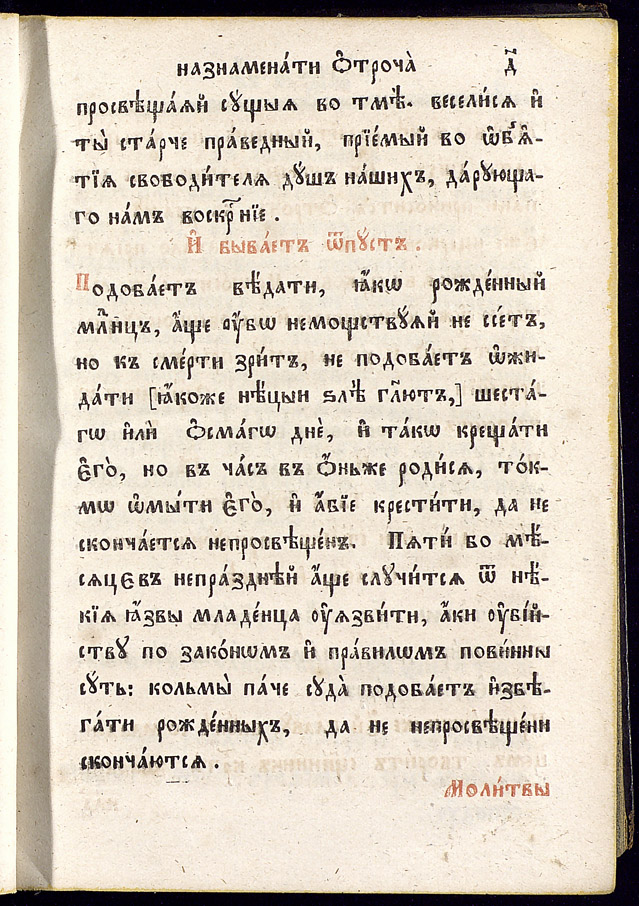 назнамена́ти Ѻ҆троча̀ д҃
просвѣща́ѧй сꙋ́щыѧ во тмѣ̀. весели́сѧ и҆
ты̀ ста́рче пра́ведный, прїе́мый во ѡ҆б̾ѧ́-
тїѧ свободи́телѧ дꙋ́шъ на́шихъ, да́рꙋюща-
го на́мъ воскр҇нїе .
И҆ быва́етъ ѿпꙋ́стъ .
Подоба́етъ вѣ́дати, ꙗ҆́кѡ рожде́нный
мл҃нцъ, а҆́ще ᲂу҆́бѡ немощствꙋ́ѧй не ссе́тъ,
но къ сме́рти зри́тъ, не подоба́етъ ѡ҆жи-
да́ти [ꙗ҆́коже нѣ́цыи ѕлѣ̀ гл҃ютъ,] шеста́-
гѡ и҆лѝ Ѻ҆сма́гѡ днѐ, и҆ та́кѡ креща́ти
Є҆го̀, но въ ча́съ въ Ѻ҆́ньже роди́сѧ, то́к-
мѡ ѡ҆мы́ти Є҆го̀, и҆ а҆́бїе крести́ти, да не
сконча́етсѧ непросвѣще́нъ. Пѧти́ бо мѣ́-
сѧцєвъ непра́зднѣй а҆́ще слꙋчи́тсѧ ѿ нѣ́-
кїѧ ꙗ҆́звы младе́нца ᲂу҆ѧзви́ти, а҆́ки ᲂу҆бі́й-
ствꙋ по зако́нѡмъ и҆ пра́вилѡмъ пови́нны
сꙋ́ть: кольмы̀ па́че сꙋда̀ подоба́етъ и҆збѣ-
га́ти рожде́нныхъ, да не непросвѣще́ни
сконча́ютсѧ .
Моли́твы